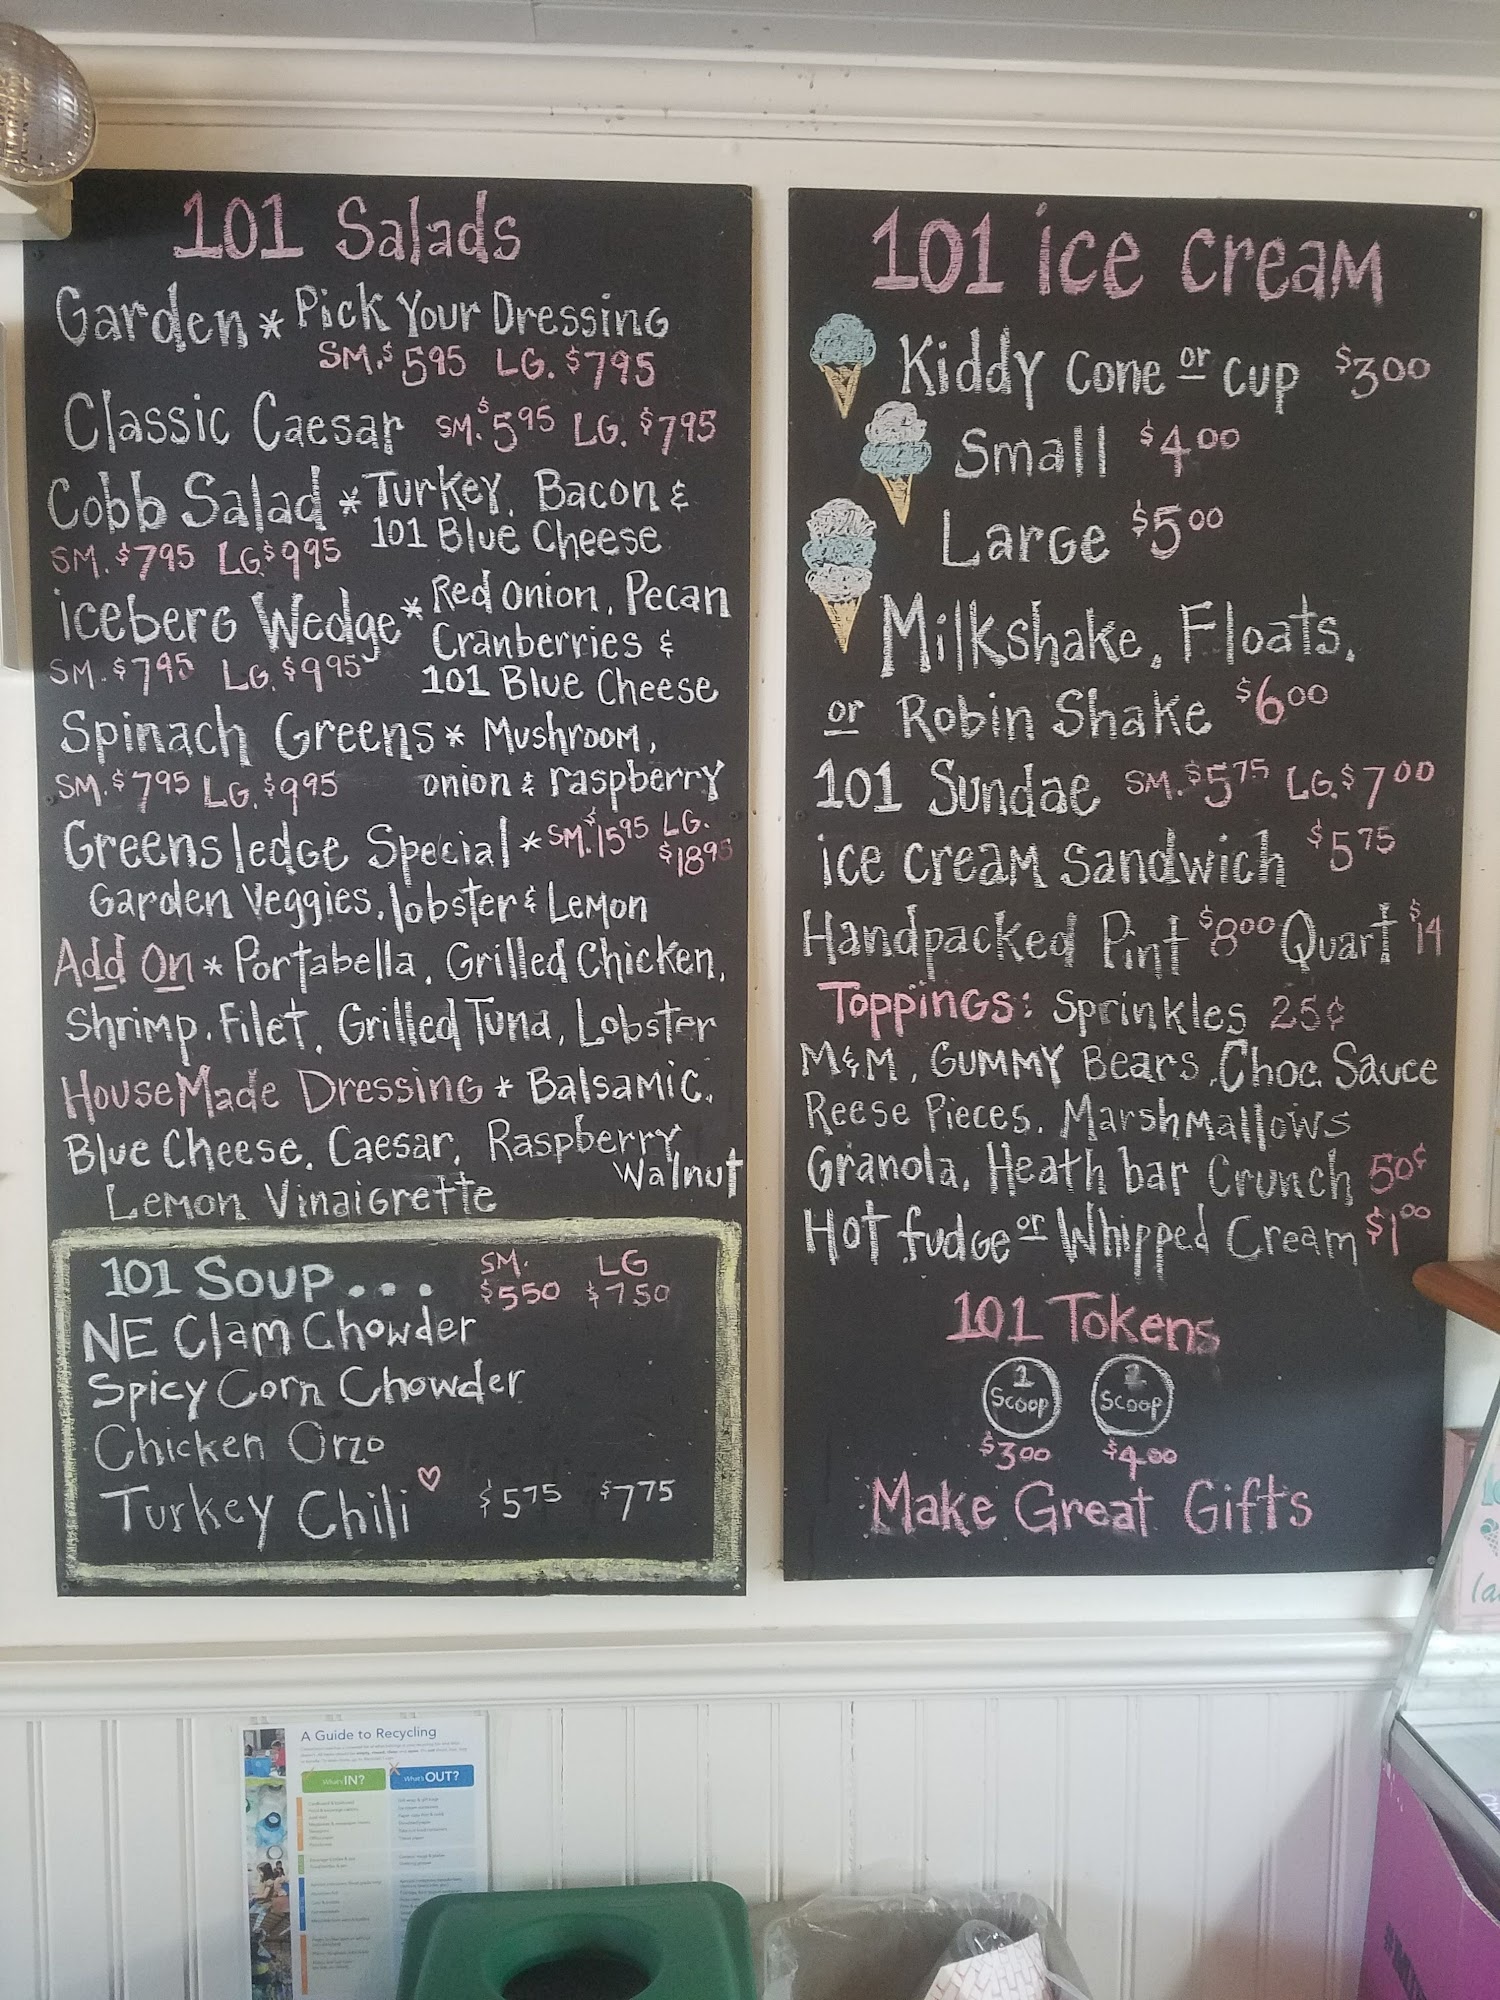 101 Salads
Garden * Pick Your Dressing
SM. $595 LG. $795
Classic Caesar SM. $595 LG. $795
Cobb Salad * Turkey, Bacon &
101 Blue Cheese
SM. $795 LG $995
iceberg Wedge * Red Onion, Pecan
Cranberries &
SM. $795 LG. $995
101 Blue Cheese
Spinach Greens * Mushroom,
SM. $795 LG. $995 onion & raspberry
Greensledge Special * SM. $1595 LG. $1895
Garden Veggies, lobster & Lemon
Add On * Portabella, Grilled Chicken,
Shrimp, Filet, Grilled Tuna, Lobster
HouseMade Dressing * Balsamic,
Blue Cheese, Caesar, Raspberry
Walnut
Lemon Vinaigrette
101 Soup... SM. $550 LG $750
NE Clam Chowder
Spicy Corn Chowder
Chicken Orzo
Turkey Chili $575 $775
101 ice cream
Kiddy Cone or Cup $300
Small $400
Large $500
Milkshake, Floats,
or Robin Shake $600
101 Sundae SM. $575 LG. $700
ice cream sandwich $575
Handpacked Pint $800 Quart $14
Toppings: Sprinkles 25¢
M&M, Gummy Bears, Choc. Sauce
Reese Pieces, Marshmallows
Granola, Heath bar Crunch 50¢
Hot fudge or Whipped Cream $100
101 Tokens
1 Scoop 2 Scoop
$300 $400
Make Great Gifts
A Guide to Recycling
What's IN? What's OUT?